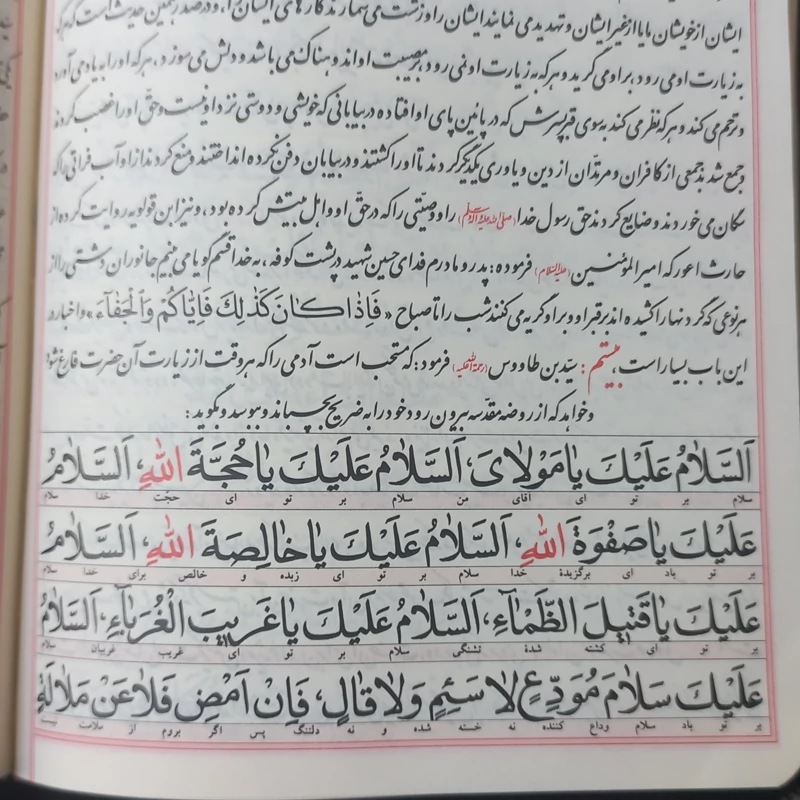 ایشان از خویشان ما یا از غیر ایشان و تهدید می نمایند ایشان را و زشت می شمارند کارهای ایشان را، و در صدر همین حدیث است که هر که
به زیارت او می رود، بر او می گرید و هر که به زیارت او نمی رود، بر مصیبت او اندوهناک می باشد و دلش می سوزد، هر که او را به یاد می آورد
و ترحم می کند و هر که نظر می کند به سوی قبر پسرش که در پائین پای او افتاده در بیابانی که خویشی و دوستی نزد او نیست و حق او را غصب کردند
و جمع شدند جمعی از کافران و مرتدان از دین و یاوری یکدیگر کردند تا او را کشتند و در بیابان دفن نکرده انداختند و منع کردند از او آب فراتی را که
سگان می خوردند و ضایع کردند حق رسول خدا (صلی الله علیه و آله وسلم) را و وصیتی را که در حق او و اهل بیتش کرده بود، و نیز ابن قولویه روایت کرده از
حارث اعور که امیرالمؤمنین (علیه السلام) فرموده: پدر و مادرم فدای حسین شهید در پشت کوفه، به خدا قسم گویا می بینم جانوران دشتی را از
هر نوعی که گردنها را کشیده اند بر قبر او و بر او گریه می کنند شب را تا صباح «فَاِذٰا كٰانَ كَذٰلِكَ فَاِيّٰاكُمْ وَالْجَفٰآءَ» و اخبار در
این باب بسیار است، بیستم: سید بن طاووس (رحمة الله علیه) فرمود: که مستحب است آدمی را که هر وقت از زیارت آن حضرت فارغ شود
و خواهد که از روضه مقدسه بیرون رود خود را به ضریح بچسباند و ببوسد و بگوید:
اَلسَّلاٰمُ عَلَيْكَ يٰا مَوْلاٰىَ، اَلسَّلاٰمُ عَلَيْكَ يٰا حُجَّةَ اللهِ، اَلسَّلاٰمُ
سلام بر تو ای آقای من سلام بر تو ای حجّت خدا سلام
عَلَيْكَ يٰا صَفْوَةَ اللهِ، اَلسَّلاٰمُ عَلَيْكَ يٰا خٰالِصَةَ اللهِ، اَلسَّلاٰمُ
بر تو باد ای برگزیدهٔ خدا سلام بر تو ای زبده و خالص برای خدا سلام
عَلَيْكَ يٰا قَتيلَ الظَّمٰاءِ، اَلسَّلاٰمُ عَلَيْكَ يٰا غَريبَ الْغُرَبٰاءِ، اَلسَّلاٰمُ
بر تو ای کشته شدهٔ تشنگی سلام بر تو ای غریب غریبان سلام
عَلَيْكَ سَلاٰمَ مُوَدِّعٍ لاٰ سَئِمٍ وَلاٰ قٰالٍ، فَاِنْ اَمْضِ فَلاٰ عَنْ مَلاٰلَةٍ
بر تو باد سلام وداع کننده نه خسته شده و نه دلتنگ پس اگر بروم از ملامت نیست